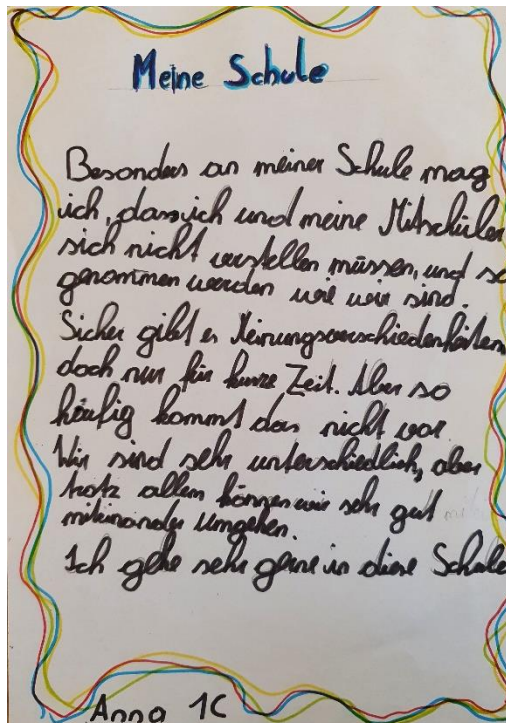 Meine Schule
Besonders an meiner Schule mag
ich, dass ich und meine Mitschüler
sich nicht verstellen müssen, und so
genommen werden wie wir sind.
Sicher gibt es Meinungsverschiedenheiten
doch nur für kurze Zeit. Aber so
häufig kommt das nicht vor
Wir sind sehr unterschiedlich, aber
trotz allem können wir sehr gut
miteinander umgehen.
Ich gehe sehr gerne in diese Schule
Anna 1C